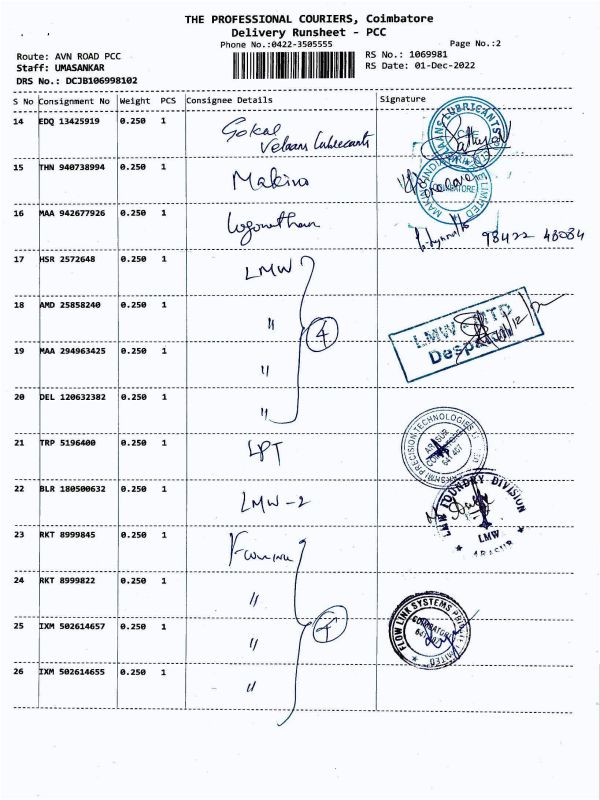 THE PROFESSIONAL COURIERS, Coimbatore
Delivery Runsheet - PCC
Phone No.:0422-3505555
Page No.:2
Route: AVN ROAD PCC
Staff: UMASANKAR
DRS No.: DCJB106998102
RS No.: 1069981
RS Date: 01-Dec-2022
S No Consignment No Weight PCS Consignee Details Signature
14 EDQ 13425919 0.250 1 Gokal
Velaans Lubricants
15 THN 940738994 0.250 1 Makino
16 MAA 942677926 0.250 1 Loganathan
98422 48084
17 HSR 2572648 0.250 1 LMW
18 AMD 25858240 0.250 1 "
4
LMW
Despatch
19 MAA 294963425 0.250 1 "
20 DEL 120632382 0.250 1 "
21 TRP 5196400 0.250 1 LPT
PRECISION TECHNOLOGIES
ARASUR
641 407
22 BLR 180500632 0.250 1 LMW-2
LMW FOUNDRY DIVISION
LMW
ARASUR
23 RKT 8999845 0.250 1
24 RKT 8999822 0.250 1 "
25 IXM 502614657 0.250 1 "
FLOW LINK SYSTEMS PRIVATE LIMITED
COIMBATORE
26 IXM 502614655 0.250 1 "